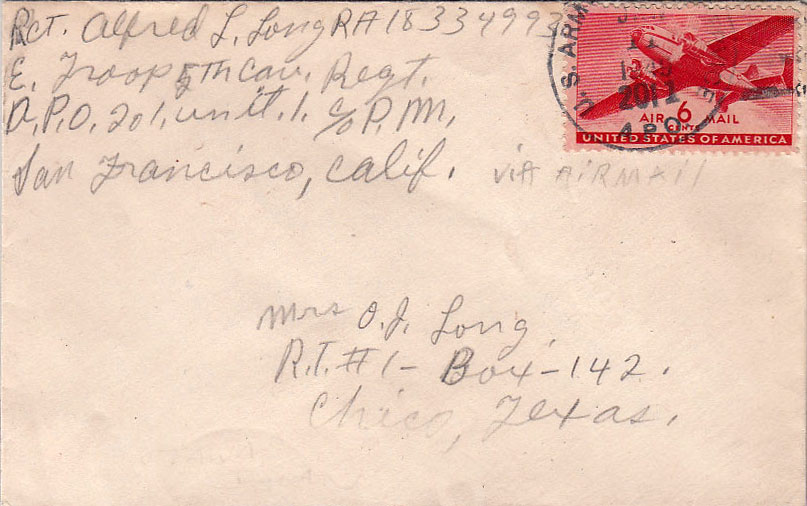 Rct. Alfred L. Long RA 18334993
E. Troop 5th Cav. Regt.
A.P.O. 201, unit. 1. c/o P.M.
San Francisco, Calif.
VIA AIRMAIL
U.S. ARMY
2012
A.P.O.
AIR 6 MAIL
CENTS
UNITED STATES OF AMERICA
Mrs O.J. Long,
R.T. #1- Box-142.
Chico, Texas.